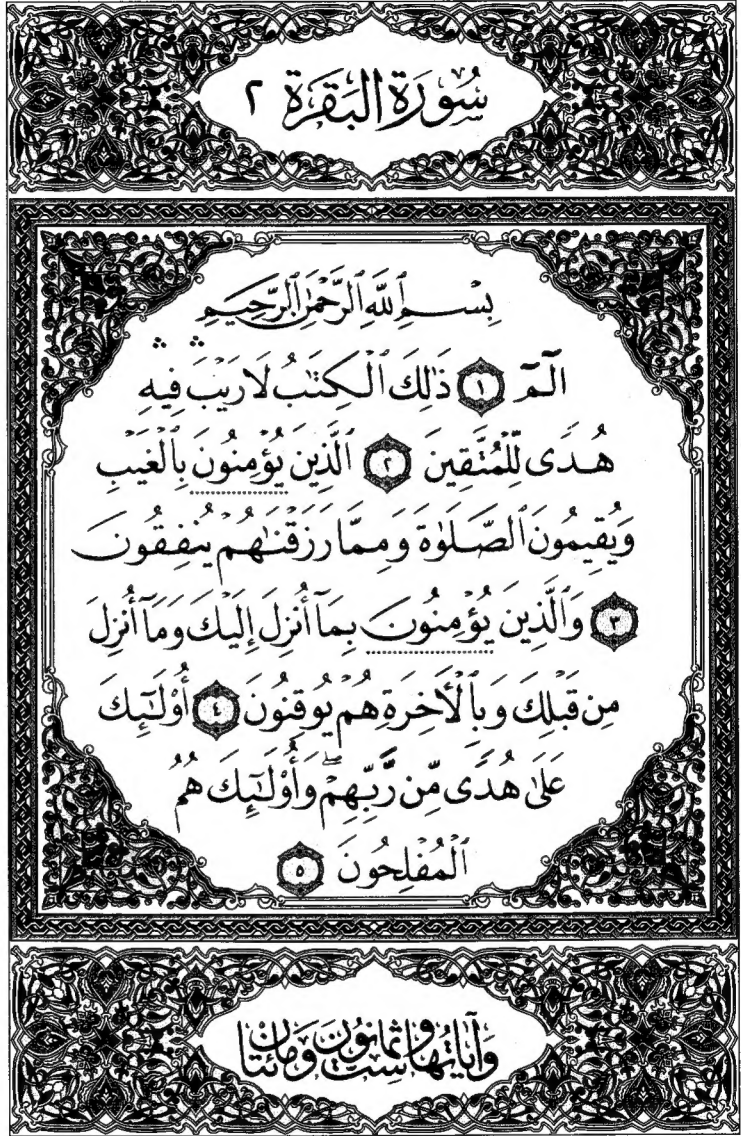 سُورَةُ البَقَرَة ٢
بِسْمِ ٱللَّهِ ٱلرَّحْمَٰنِ ٱلرَّحِيمِ
الٓمٓ ١ ذَٰلِكَ ٱلْكِتَٰبُ لَا رَيْبَ ۛ فِيهِ ۛ
هُدًى لِّلْمُتَّقِينَ ٢ ٱلَّذِينَ يُؤْمِنُونَ بِٱلْغَيْبِ
وَيُقِيمُونَ ٱلصَّلَوٰةَ وَمِمَّا رَزَقْنَٰهُمْ يُنفِقُونَ
٣ وَٱلَّذِينَ يُؤْمِنُونَ بِمَآ أُنزِلَ إِلَيْكَ وَمَآ أُنزِلَ
مِن قَبْلِكَ وَبِٱلْأَخِرَةِ هُمْ يُوقِنُونَ ٤ أُو۟لَٰٓئِكَ
عَلَىٰ هُدًى مِّن رَّبِّهِمْ ۖ وَأُو۟لَٰٓئِكَ هُمُ
ٱلْمُفْلِحُونَ ٥
وَآيَاتُهَا سِتٌّ وَثَمَانُونَ وَمَائَتَانِ